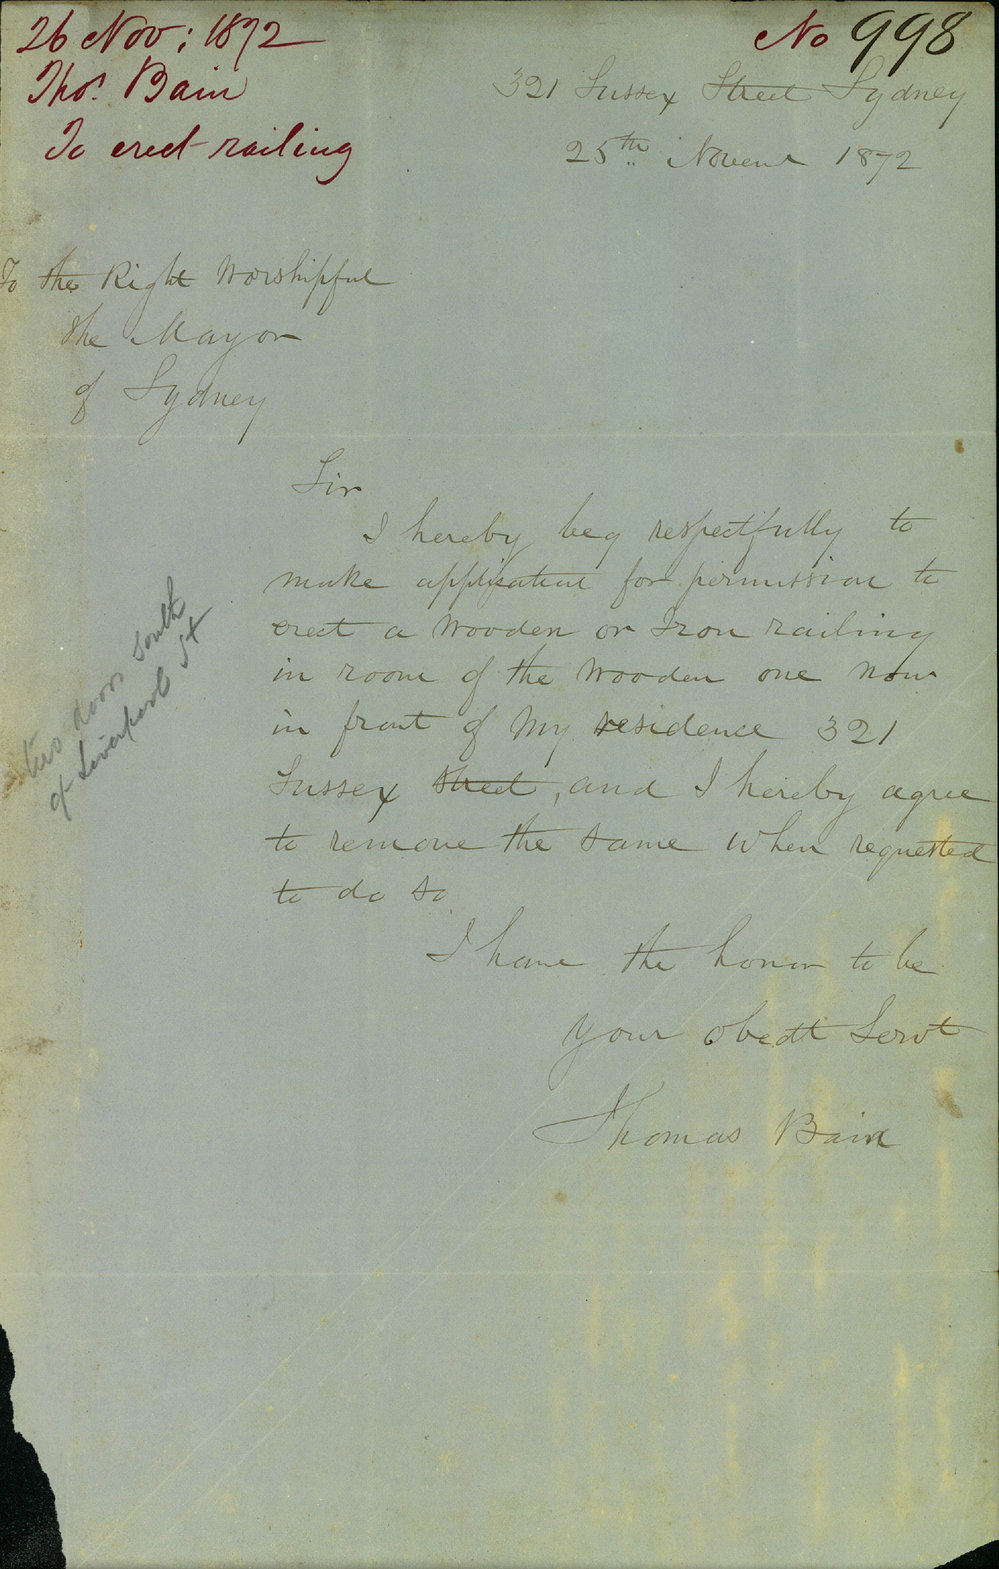 26 Nov: 1872
Thos. Bain
To erect railing
No 998
321 Sussex Street Sydney
25th Novem 1872
To the Right Worshipful
the Mayor
of Sydney
Sir
I hereby beg respectfully to
make application for permission to
erect a Wooden or Iron railing
in room of the Wooden one now
in front of My residence 321
Sussex Street, and I hereby agree
to remove the same when requested
to do so
I have the honor to be
Your Obedt Servt
Thomas Bain
two doors South
of Liverpool St